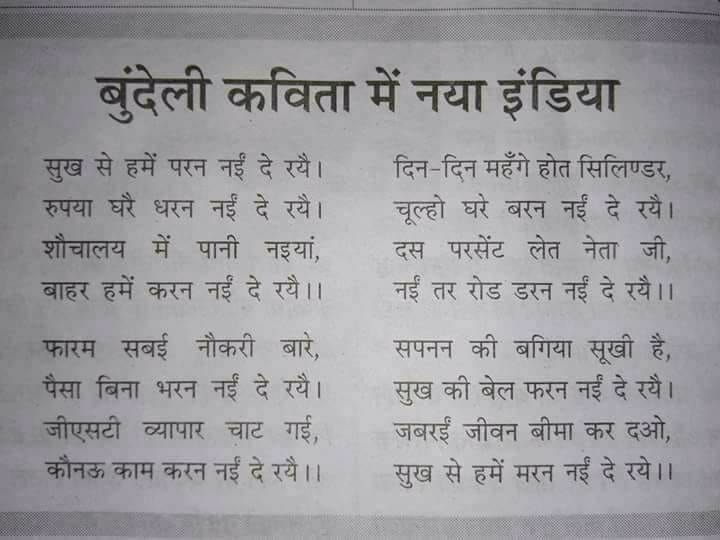 बुंदेली कविता में नया इंडिया
सुख से हमें परन नईं दे रयै।
रुपया घरै धरन नईं दे रयै।
शौचालय में पानी नइयां,
बाहर हमें करन नईं दे रयै।।
फारम सबई नौकरी बारे,
पैसा बिना भरन नईं दे रयै।
जीएसटी व्यापार चाट गई,
कौनऊ काम करन नईं दे रयै।।
दिन-दिन महँगे होत सिलिण्डर,
चूल्हो घरे बरन नईं दे रयै।
दस परसेंट लेत नेता जी,
नईं तर रोड डरन नईं दे रयै।।
सपनन की बगिया सूखी है,
सुख की बेल फरन नईं दे रयै।
जबरईं जीवन बीमा कर दओ,
सुख से हमें मरन नईं दे रये।।